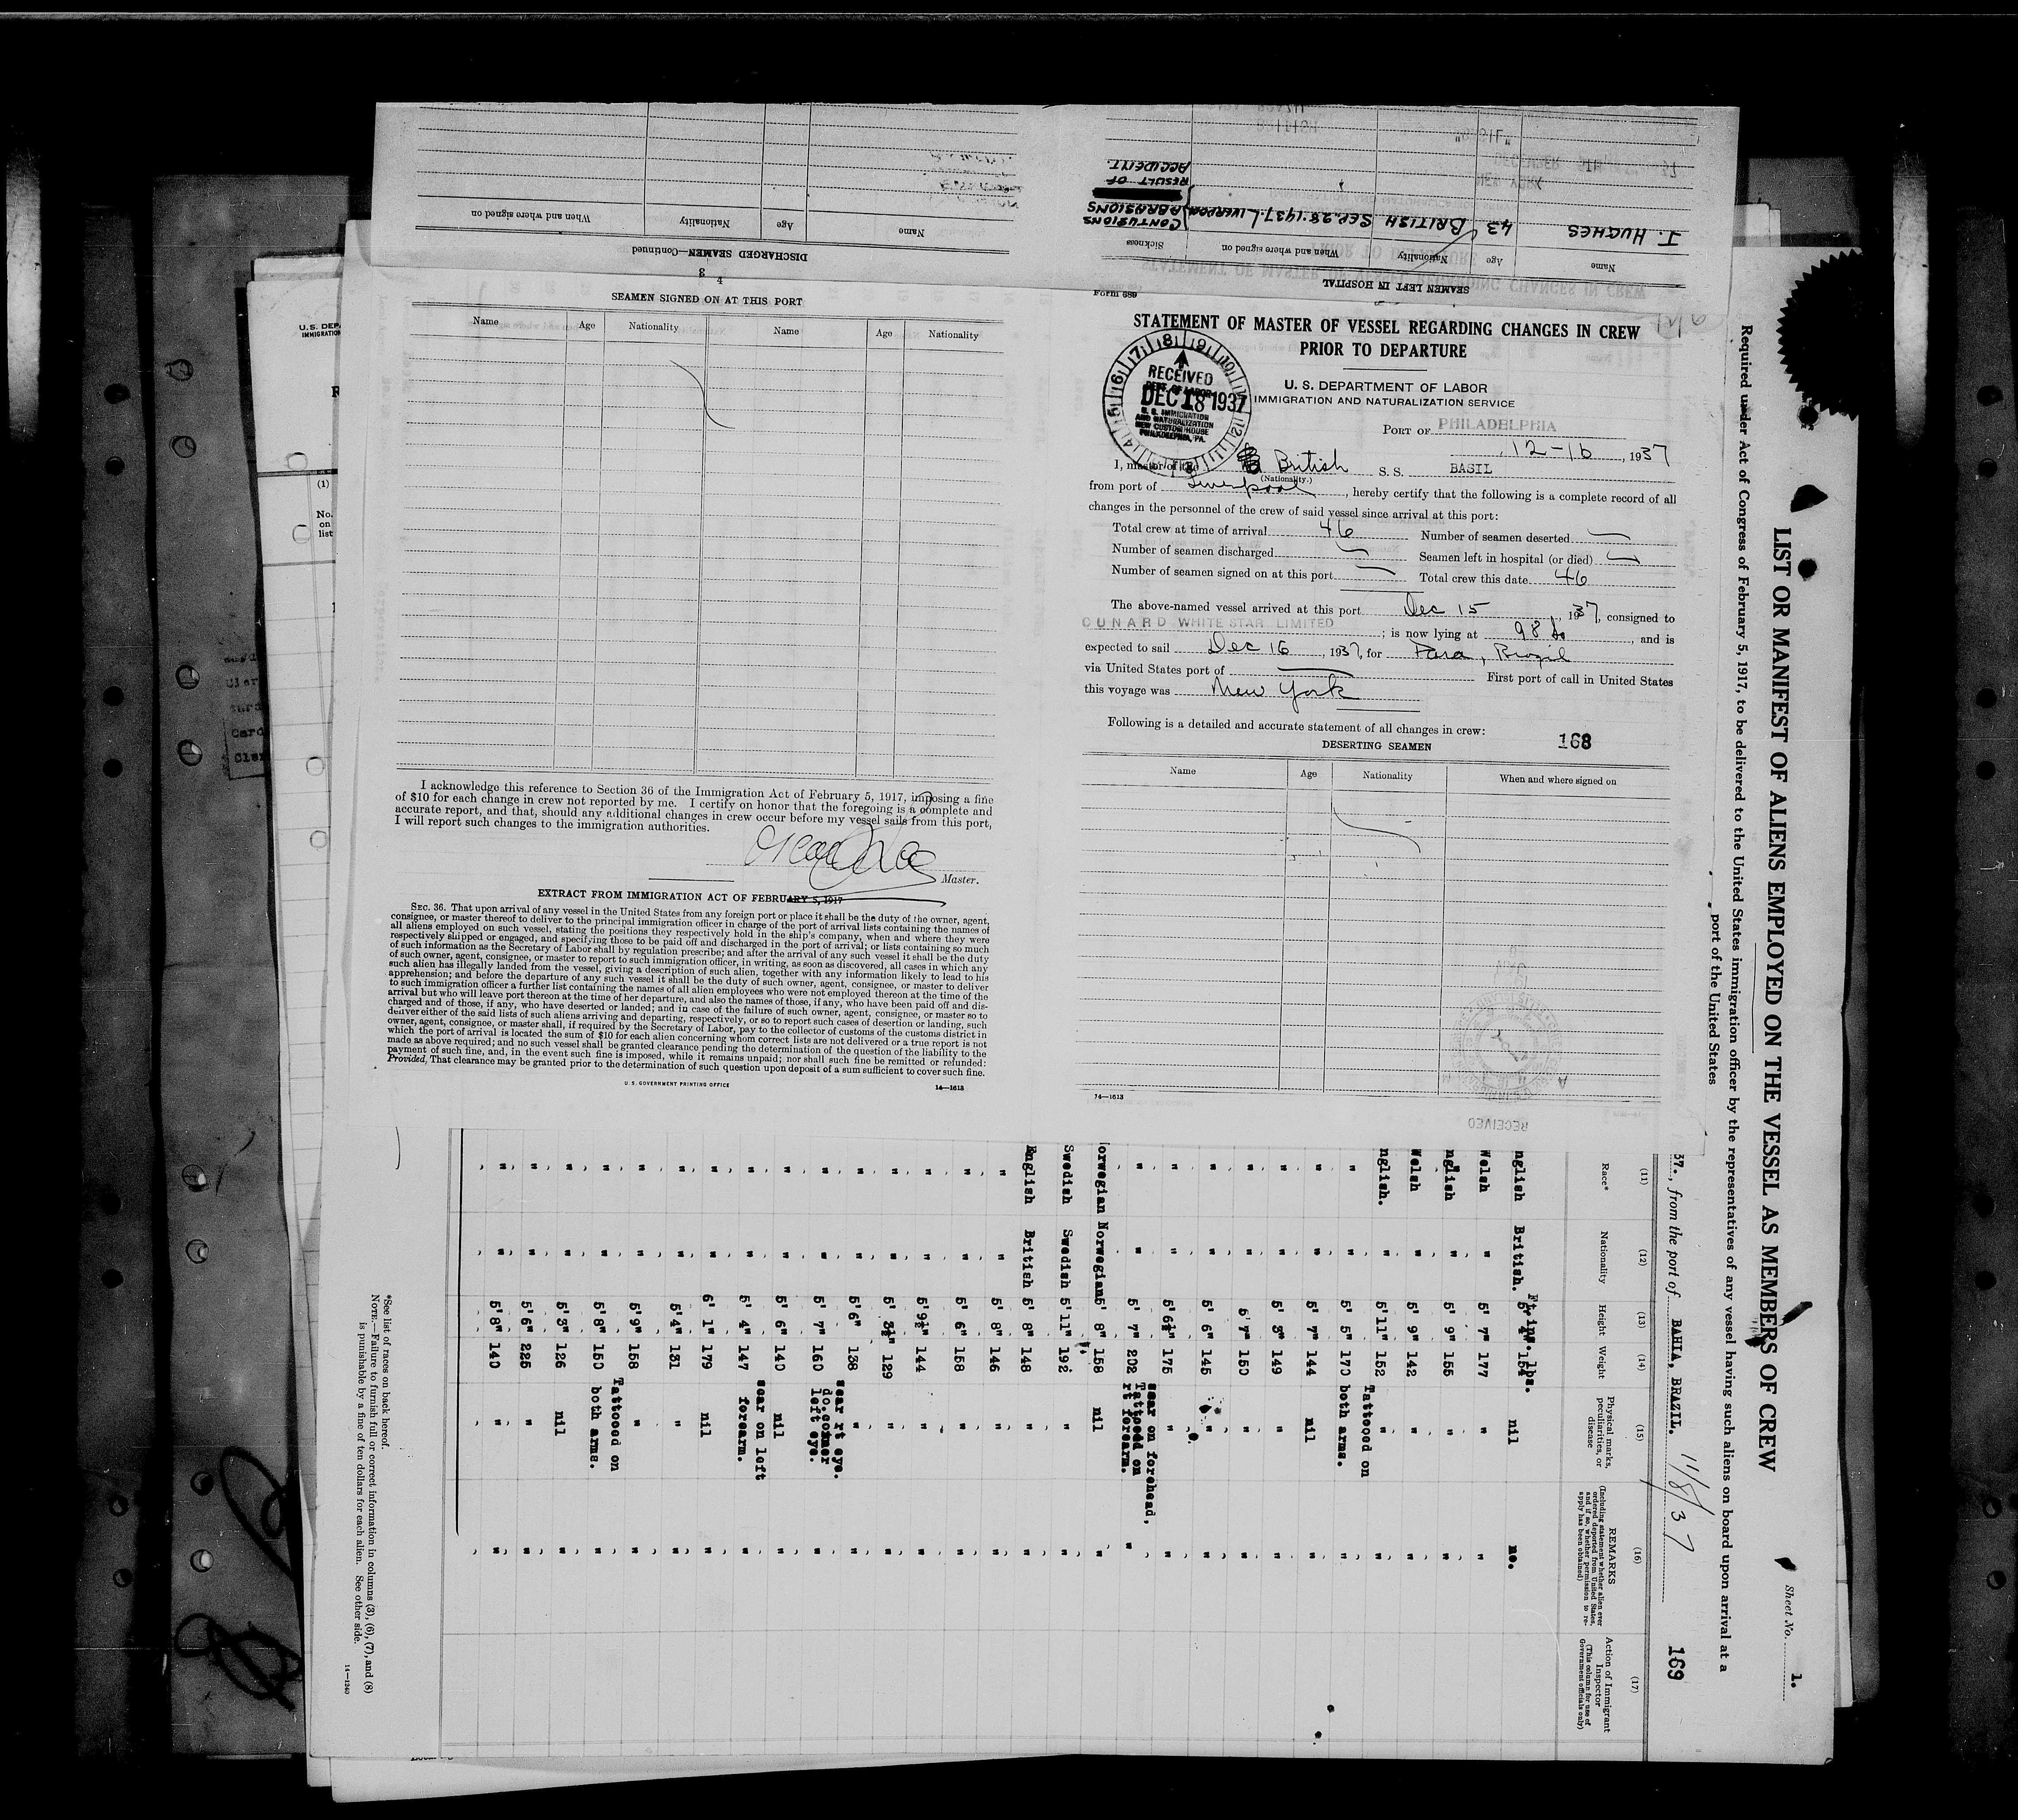 DISCHARGED SEAMEN—Continued
Name
Age
Nationality
When and where signed on
3
SEAMEN LEFT IN HOSPITAL
Name
Age
Nationality
When and where signed on
Sickness
I. HUGHES 43 BRITISH SEP. 28. 1937. LIVERPOOL
CONTUSIONS
ABRASIONS
RESULT OF
ACCIDENT.
4
SEAMEN SIGNED ON AT THIS PORT
Name Age Nationality Name Age Nationality
I acknowledge this reference to Section 36 of the Immigration Act of February 5, 1917, imposing a fine
of $10 for each change in crew not reported by me. I certify on honor that the foregoing is a complete and
accurate report, and that, should any additional changes in crew occur before my vessel sails from this port,
I will report such changes to the immigration authorities.
Master.
EXTRACT FROM IMMIGRATION ACT OF FEBRUARY 5, 1917
SEC. 36. That upon arrival of any vessel in the United States from any foreign port or place it shall be the duty of the owner, agent,
consignee, or master thereof to deliver to the principal immigration officer in charge of the port of arrival lists containing the names of
all aliens employed on such vessel, stating the positions they respectively hold in the ship's company, when and where they were
respectively shipped or engaged, and specifying those to be paid off and discharged in the port of arrival; or lists containing so much
of such information as the Secretary of Labor shall by regulation prescribe; and after the arrival of any such vessel it shall be the duty
of such owner, agent, consignee, or master to report to such immigration officer, in writing, as soon as discovered, all cases in which any
such alien has illegally landed from the vessel, giving a description of such alien, together with any information likely to lead to his
apprehension; and before the departure of any such vessel it shall be the duty of such owner, agent, consignee, or master to deliver
to such immigration officer a further list containing the names of all alien employees who were not employed thereon at the time of the
arrival but who will leave port thereon at the time of her departure, and also the names of those, if any, who have been paid off and dis-
charged and of those, if any, who have deserted or landed; and in case of the failure of such owner, agent, consignee, or master so to
deliver either of the said lists of such aliens arriving and departing, respectively, or so to report such cases of desertion or landing, such
owner, agent, consignee, or master shall, if required by the Secretary of Labor, pay to the collector of customs of the customs district in
which the port of arrival is located the sum of $10 for each alien concerning whom correct lists are not delivered or a true report is not
made as above required; and no such vessel shall be granted clearance pending the determination of the question of the liability to the
payment of such fine, and, in the event such fine is imposed, while it remains unpaid; nor shall such fine be remitted or refunded:
Provided, That clearance may be granted prior to the determination of such question upon deposit of a sum sufficient to cover such fine.
U.S. GOVERNMENT PRINTING OFFICE 14—1613
Form 689
STATEMENT OF MASTER OF VESSEL REGARDING CHANGES IN CREW
PRIOR TO DEPARTURE
U. S. DEPARTMENT OF LABOR
IMMIGRATION AND NATURALIZATION SERVICE
RECEIVED
DEPT. OF LABOR
DEC 18 1937
U. S. IMMIGRATION
AND NATURALIZATION
NEW CUSTOM HOUSE
PHILADELPHIA, PA.
PORT OF PHILADELPHIA
12-16, 1937
I, master of the British S. S. BASIL
(Nationality.)
from port of Liverpool, hereby certify that the following is a complete record of all
changes in the personnel of the crew of said vessel since arrival at this port:
Total crew at time of arrival 46 Number of seamen deserted —
Number of seamen discharged — Seamen left in hospital (or died) —
Number of seamen signed on at this port — Total crew this date 46
The above-named vessel arrived at this port Dec 15, 1937, consigned to
CUNARD WHITE STAR LIMITED; is now lying at 98 So, and is
expected to sail Dec 16, 1937, for Para, Brazil
via United States port of — First port of call in United States
this voyage was New York
Following is a detailed and accurate statement of all changes in crew: 168
DESERTING SEAMEN
Name Age Nationality When and where signed on
14—1613
RECEIVED
U.S. DEPA
IMMIGRATION
(1)
No.
on
list
LIST OR MANIFEST OF ALIENS EMPLOYED ON THE VESSEL AS MEMBERS OF CREW
Sheet No. 1.
Required under Act of Congress of February 5, 1917, to be delivered to the United States immigration officer by the representatives of any vessel having such aliens on board upon arrival at a
port of the United States
37., from the port of BAHIA, BRAZIL. 11/8/37 169
(11) (12) (13) (14) (15) (16) (17)
Race* Nationality Height Weight Physical marks, peculiarities, or disease
REMARKS
(Including statement whether alien ever ordered deported from United States, and if so, whether permission to re-apply has been obtained)
Action of Immigrant Inspector
(This column for use of Government officials only)
Ft ins. lbs.
nglish British. 5' 4" 154 nil no.
Welsh " 5' 7" 177 " "
nglish " 5' 9" 155 " "
Welsh " 5' 9" 142 " "
nglish. " 5'11" 152 " "
" " 5' 5" 170 Tattooed on both arms. "
" " 5' 7" 144 nil "
" " 5' 3" 149 " "
" " 5' 7" 150 " "
" " 5' 6" 145 " "
" " 5' 6½" 175 " "
" " 5' 7" 202 scar on forehead, Tattooed on rt forearm. "
orwegian Norwegian 5' 8" 158 nil "
Swedish Swedish 5'11" 192 " "
English British 5' 8" 148 " "
" " 5' 8" 146 " "
" " 5' 6" 158 " "
" " 5'9½" 144 " "
" " 5' 3½" 129 " "
" " 5'6" 138 " "
" " 5' 7" 160 scar rt eye. do. corner left eye. "
" " 5' 6" 140 nil "
" " 5' 4" 147 scar on left forearm. "
" " 6' 1" 179 nil "
" " 5'4" 131 " "
" " 5'9" 158 " "
" " 5'8" 150 Tattooed on both arms. "
" " 5'3" 126 nil "
" " 5'6" 225 " "
" " 5'8" 140 " "
*See list of races on back hereof.
NOTE.—Failure to furnish full or correct information in columns (3), (6), (7), and (8)
is punishable by a fine of ten dollars for each alien. See other side.
14—1240